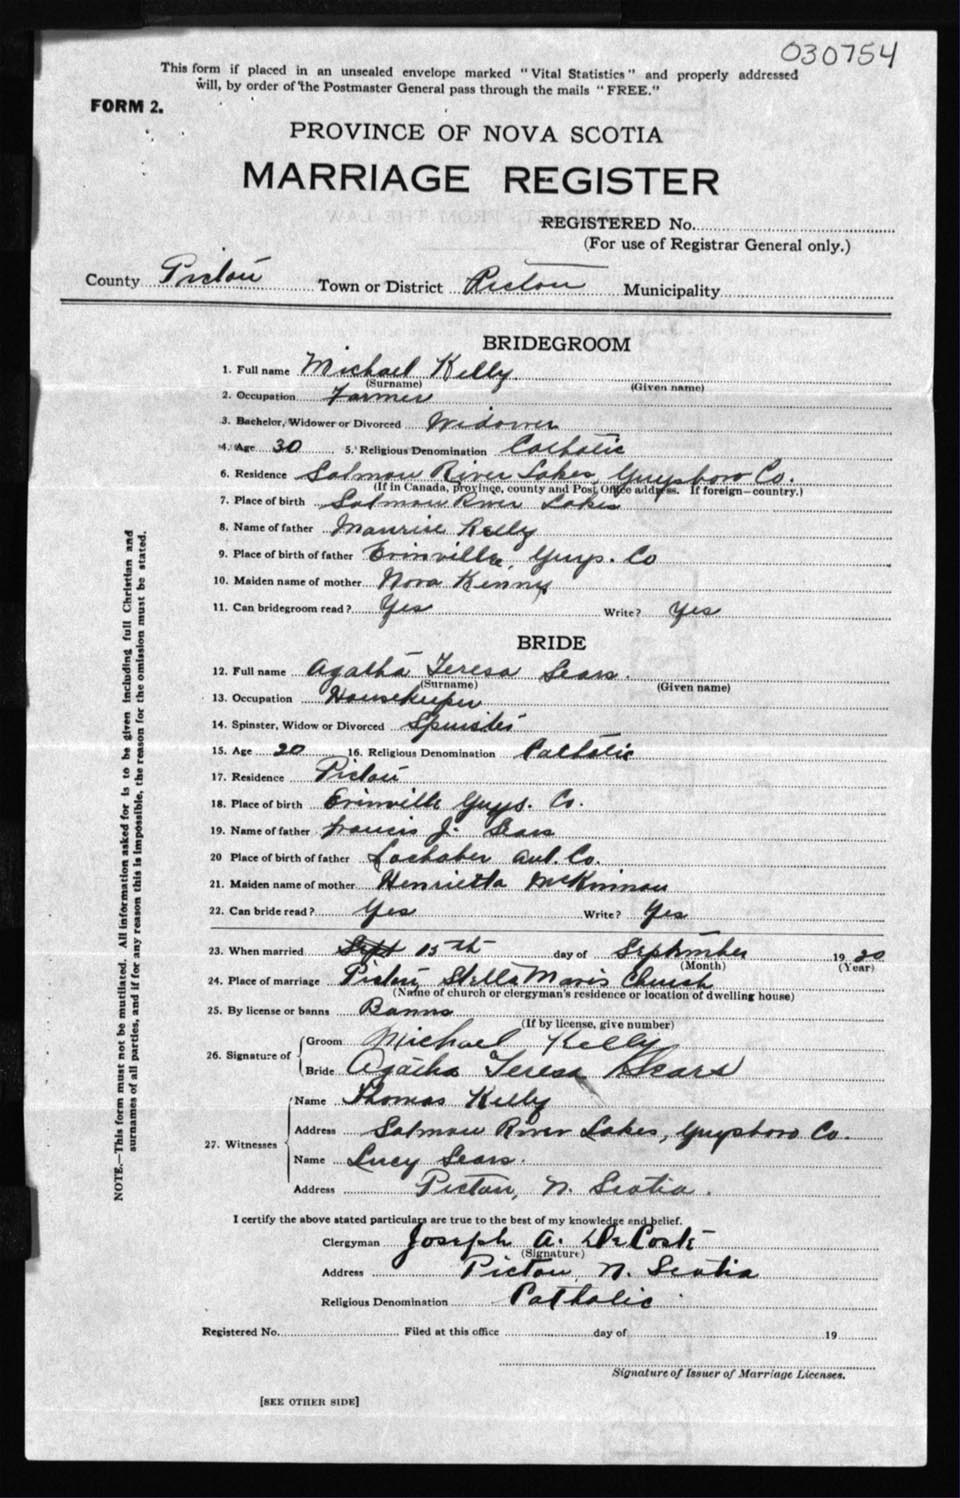 030754
This form if placed in an unsealed envelope marked "Vital Statistics" and properly addressed
will, by order of the Postmaster General pass through the mails "FREE."
FORM 2.
PROVINCE OF NOVA SCOTIA
MARRIAGE REGISTER
REGISTERED No.
(For use of Registrar General only.)
County Pictou Town or District Pictou Municipality
BRIDEGROOM
1. Full name Michael Kelly
(Surname) (Given name)
2. Occupation Farmer
3. Bachelor, Widower or Divorced Widower
4. Age 30 5. Religious Denomination Catholic
6. Residence Salmon River Lakes, Guysboro Co.
(If in Canada, province, county and Post Office address. If foreign—country.)
7. Place of birth Salmon River Lakes
8. Name of father Maurice Kelly
9. Place of birth of father Erinville, Guys. Co
10. Maiden name of mother Nora Kenny
11. Can bridegroom read? Yes Write? Yes
BRIDE
12. Full name Agatha Teresa Sears.
(Surname) (Given name)
13. Occupation Housekeeper
14. Spinster, Widow or Divorced Spinster
15. Age 20 16. Religious Denomination Catholic
17. Residence Pictou
18. Place of birth Erinville Guys. Co.
19. Name of father Francis J. Sears
20 Place of birth of father Lochaber Ant. Co.
21. Maiden name of mother Henrietta McKinnon
22. Can bride read? Yes Write? Yes
23. When married Sept 15th day of September 1920
(Month) (Year)
24. Place of marriage Pictou, Stella Maris Church
(Name of church or clergyman's residence or location of dwelling house)
25. By license or banns Banns
(If by license, give number)
26. Signature of Groom Michael Kelly
Bride Agatha Teresa Sears
27. Witnesses Name Thomas Kelly
Address Salmon River Lakes, Guysboro Co.
Name Lucy Sears.
Address Pictou, N. Scotia.
I certify the above stated particulars are true to the best of my knowledge and belief.
Clergyman Joseph A. DeCoste
(Signature)
Address Pictou, N. Scotia
Religious Denomination Catholic
Registered No. Filed at this office day of 19
Signature of Issuer of Marriage Licenses.
[SEE OTHER SIDE]
NOTE.—This form must not be mutilated. All information asked for is to be given including full Christian and
surnames of all parties, and if for any reason this is impossible, the reason for the omission must be stated.